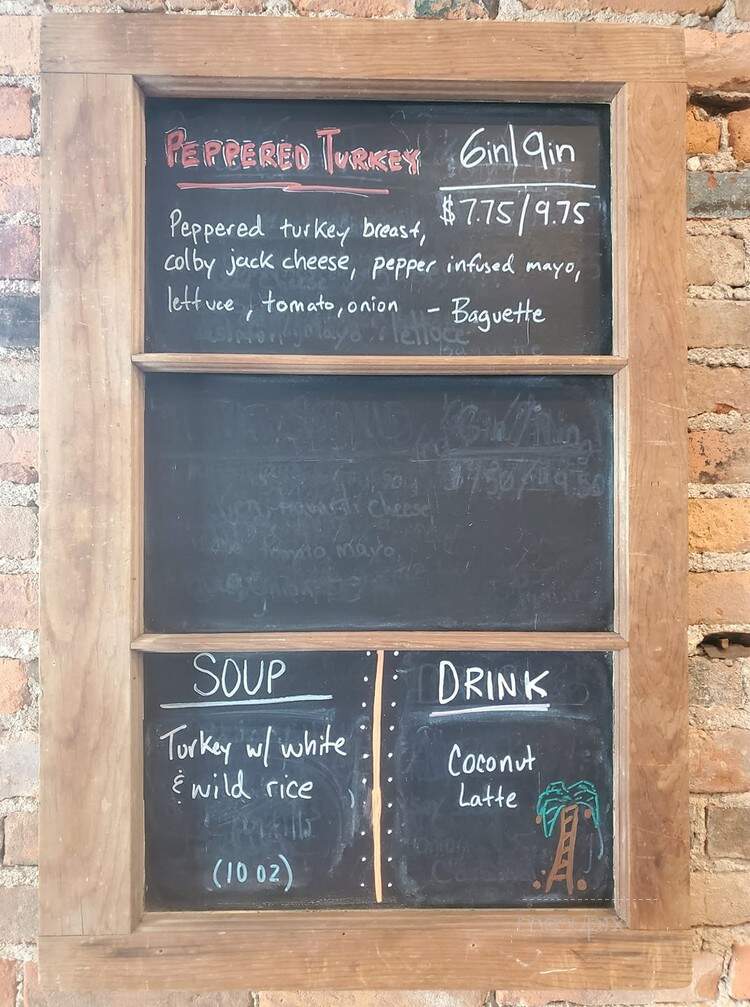 PEPPERED TURKEY
6in/9in
$7.75/9.75
Peppered turkey breast,
colby jack cheese, pepper infused mayo,
lettuce, tomato, onion - Baguette
SOUP
Turkey w/ white
& wild rice
(10 oz)
DRINK
Coconut
Latte